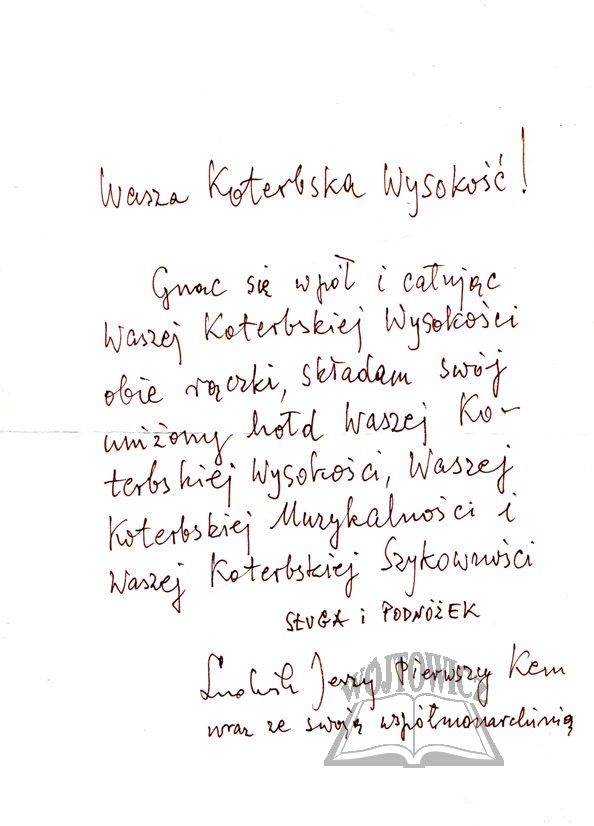 Wasza Koterbska Wysokość!
Gnąc się wpół i całując
Waszej Koterbskiej Wysokości
obie rączki, składam swój
uniżony hołd Waszej Ko-
terbskiej Wysokości, Waszej
Koterbskiej Muzykalności i
Waszej Koterbskiej Szykowności
SŁUGA i PODNÓŻEK
Ludwik Jerzy Pierwszy Kern
wraz ze swoją współmonarchinią
WÓJTOWICZ